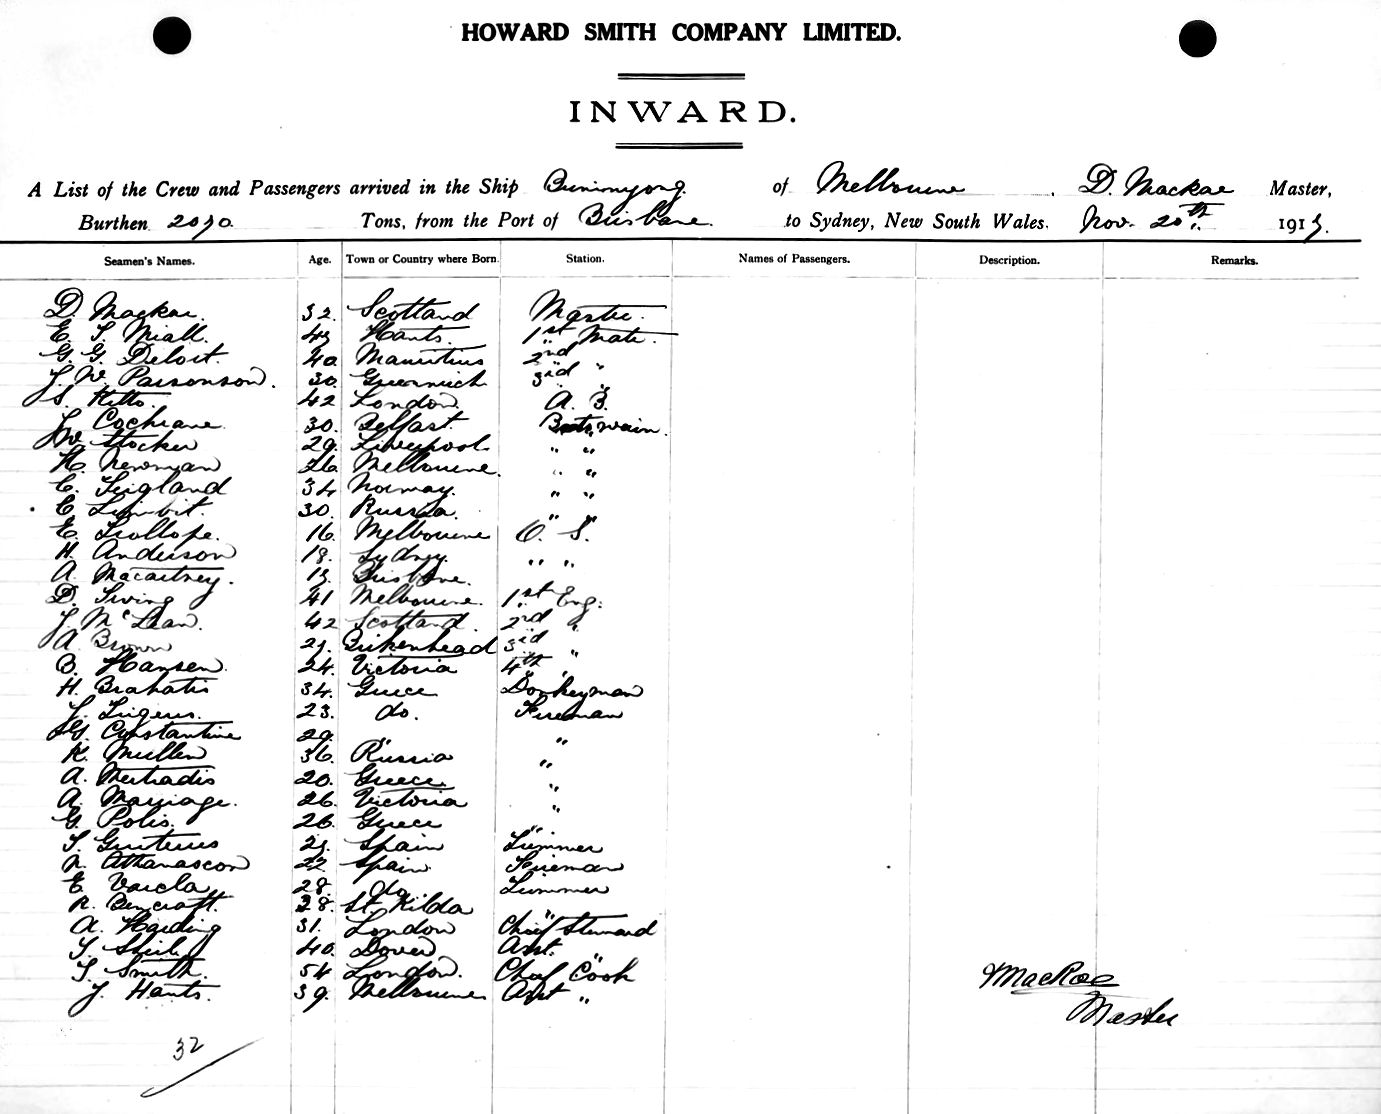 HOWARD SMITH COMPANY LIMITED.
INWARD.
A List of the Crew and Passengers arrived in the Ship Buninyong. of Melbourne, D. Mackae Master,
Burthen 2070. Tons, from the Port of Brisbane. to Sydney, New South Wales. Nov. 20th 1913.
Seamen's Names. Age. Town or Country where Born. Station. Names of Passengers. Description. Remarks.
D. Mackae. 32. Scotland Master.
E. S. Niall. 43 Hants. 1st Mate.
G. G. Deloit. 40 Mauritius 2nd "
J. W. Parsonson. 30. Greenwich 3rd "
S. Kitto. 42 London. A. B.
J. Cochrane 30. Belfast. Boatswain.
W. Stocker 29. Liverpool. " "
H. Newman 26. Melbourne. " "
C. 34 Norway. " "
C. 30. Russia. " "
E. Trollope. 16. Melbourne O. S.
H. Anderson 18. Sydney. " "
A. Macartney. Brisbane.
D. 41 Melbourne. 1st Eng.
J. McLean. 42 Scotland. 2nd "
A. Brown Birkenhead 3rd "
B. Hansen. 24. Victoria 4th "
H. 34. Greece Donkeyman
J. 23. do. Fireman
G. Constantine 29. " "
K. Mullen 36. Russia "
A. 20. Greece. "
A. Marriage. 26. Victoria "
G. Polis. 26. Greece "
Spain Trimmer
N. Athanascon 22. Spain. Fireman
E. Varela 28. do. Trimmer
R. Bencraft. 38. St Kilda "
A. Harding 31. London Chief Steward
T. 40. Dover Asst. "
T. Smith. 54 London. Chief Cook
J. Hants. 39. Melbourne Asst "
MacKae
Master
32